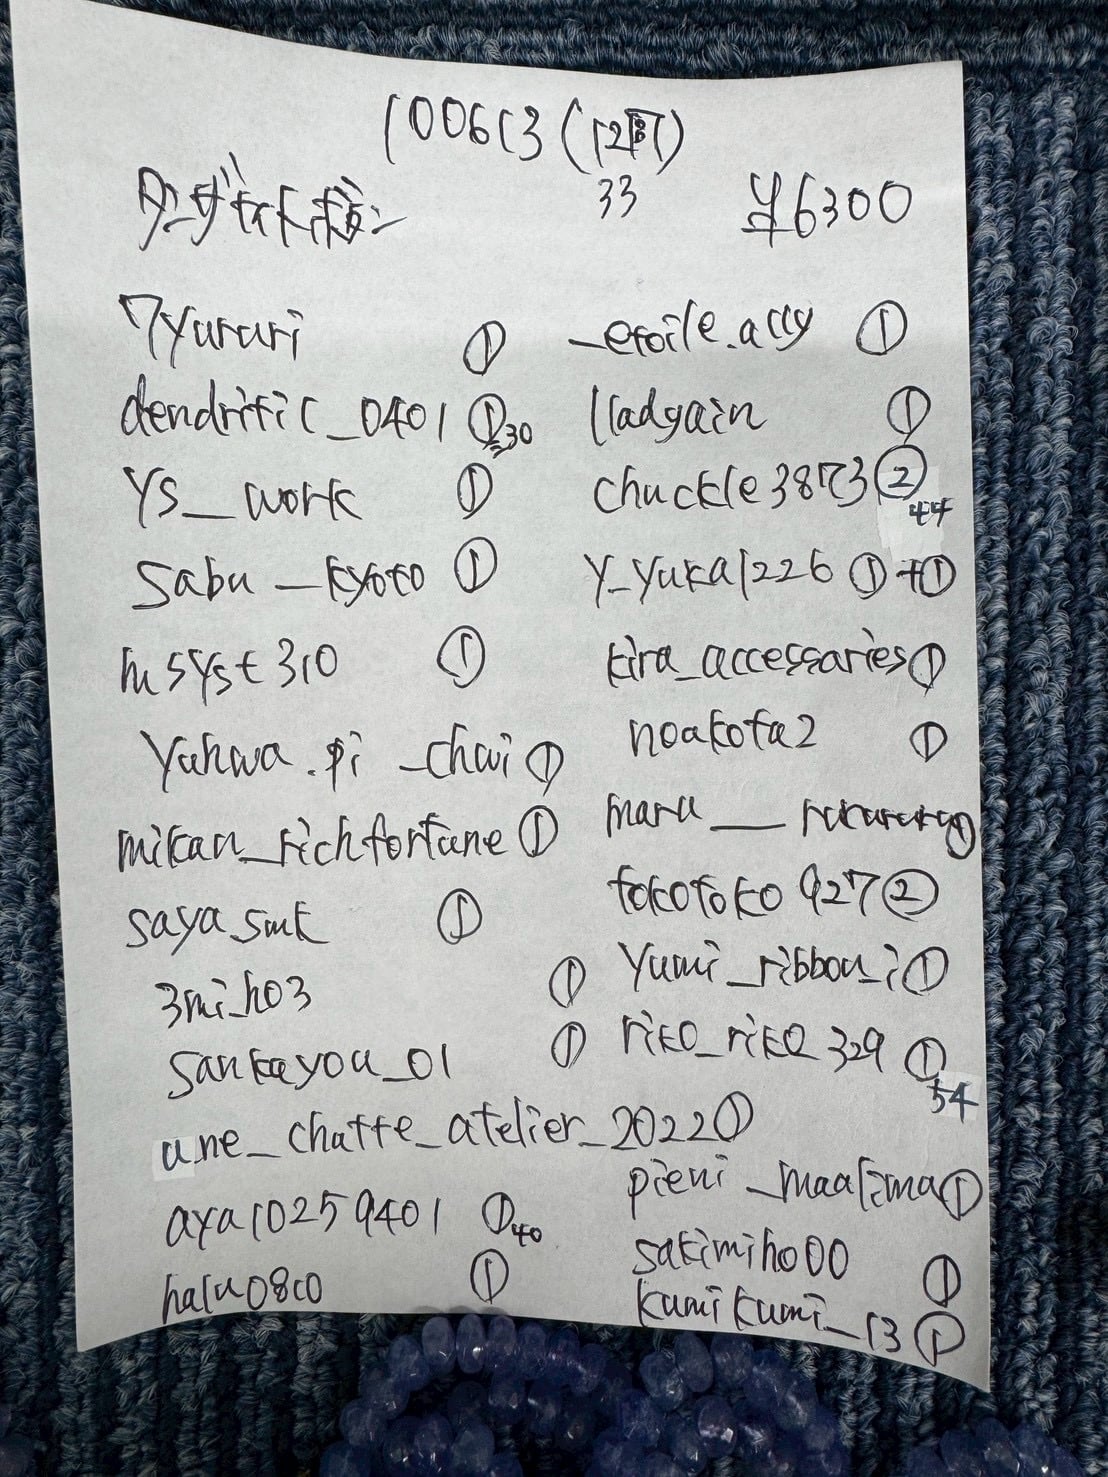 100613 (12時)
33
タンザナイトボタン ¥6300
7yururi ①
dendritic_0401 ① 30
ys__work ①
sabu_kyoto ①
msyst310 ①
yuhwa.pi_chai ①
mikan_richfortune ①
saya_smk ①
3mi_ho3 ①
sankayou_01 ①
une_chatte_atelier_2022 ①
aya10259401 ① 40
halu0810 ①
_etoile.accy ①
lladyain ①
chuckle3873 ② 44
y_yuka1226 ①+①
kira_accessaries ①
noakota2 ①
maru__rurururu ①
tokotoko927 ②
yumi_ribbon_i ①
riko_riko_329 ① 54
pieni_maalima ①
sakimiho00 ①
kumikumi_13 ①